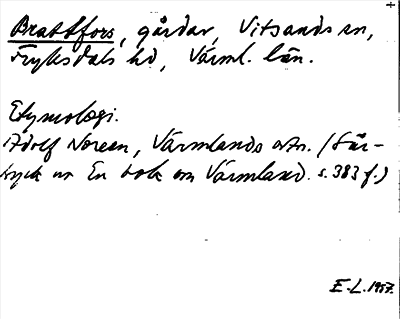 Brattfors, gårdar, Vitsands sn,
Fryksdals hd, Värml. län.
Etymologi.
Adolf Noreen, Värmlands ortn. (Sär-
tryck ur En bok om Värmland. s. 383 f.)
E.L. 1957.